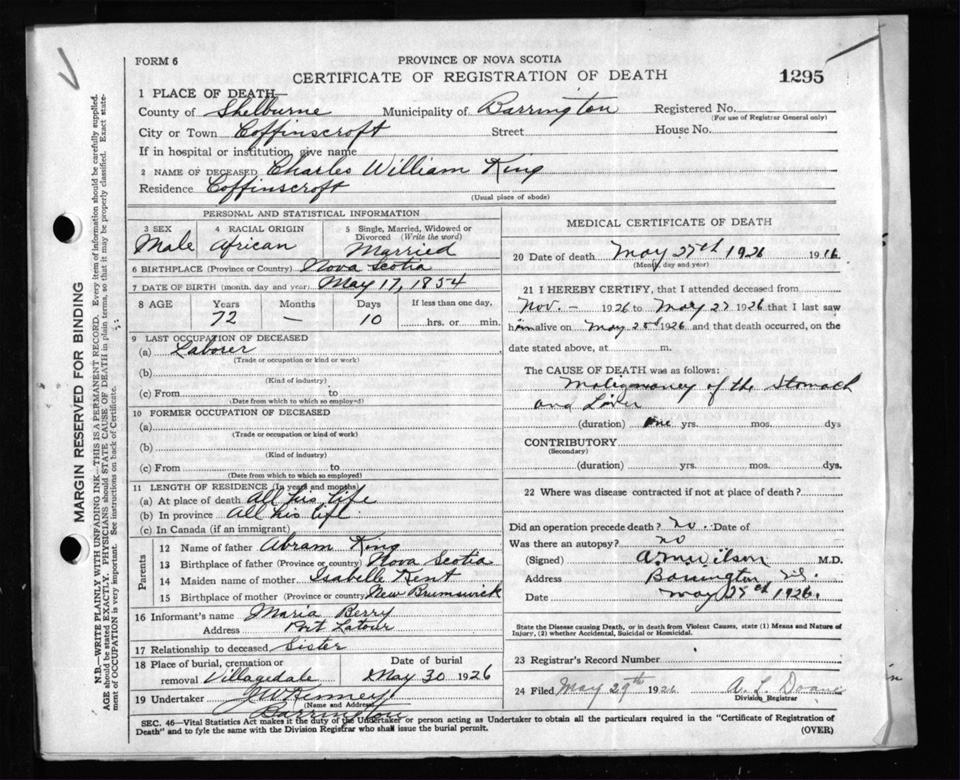 FORM 6
PROVINCE OF NOVA SCOTIA
CERTIFICATE OF REGISTRATION OF DEATH
1295
1 PLACE OF DEATH—
County of Shelburne Municipality of Barrington Registered No.
(For use of Registrar General only)
City or Town Coffinscroft Street House No.
If in hospital or institution, give name
2 NAME OF DECEASED Charles William King
Residence Coffinscroft
(Usual place of abode)
PERSONAL AND STATISTICAL INFORMATION
3 SEX 4 RACIAL ORIGIN 5 Single, Married, Widowed or Divorced (Write the word)
Male African Married
6 BIRTHPLACE (Province or Country) Nova Scotia
7 DATE OF BIRTH (month, day and year) May 17, 1854
8 AGE Years Months Days If less than one day,
72 — 10 hrs. or min.
9 LAST OCCUPATION OF DECEASED
(a) Laborer
(Trade or occupation or kind or work)
(b)
(Kind of industry)
(c) From to
(Date from which to which so employ-d)
10 FORMER OCCUPATION OF DECEASED
(a)
(Trade or occupation or kind of work)
(b)
(Kind of industry)
(c) From to
(Date from which to which so employed)
11 LENGTH OF RESIDENCE (In years and months)
(a) At place of death All his life
(b) In province All his life
(c) In Canada (if an immigrant)
Parents
12 Name of father Abram King
13 Birthplace of father (Province or Country) Nova Scotia
14 Maiden name of mother Isabelle Kent
15 Birthplace of mother (Province or country) New Brunswick
16 Informant's name Maria Berry
Address Port Latour
17 Relationship to deceased Sister
18 Place of burial, cremation or removal Villagedale
Date of burial May 30 1926
19 Undertaker
(Name and Address)
Barrington
MEDICAL CERTIFICATE OF DEATH
20 Date of death May 27th 1926 19
(Month, day and year)
21 I HEREBY CERTIFY, that I attended deceased from
Nov. – 1926 to May 27 1926 that I last saw
him alive on May 1926 and that death occurred, on the
date stated above, at m.
The CAUSE OF DEATH was as follows:
Malignancy of the Stomach
and Liver
(duration) one yrs. mos. dys
CONTRIBUTORY
(Secondary)
(duration) yrs. mos. dys.
22 Where was disease contracted if not at place of death?
Did an operation precede death? no. Date of
Was there an autopsy? no
(Signed) Wilson M.D.
Address Barrington
Date May 1926.
State the Disease causing Death, or in death from Violent Causes, state (1) Means and Nature of
Injury, (2) whether Accidental, Suicidal or Homicidal.
23 Registrar's Record Number
24 Filed May 29th 1926 A. L. Doane
Division Registrar
SEC. 46—Vital Statistics Act makes it the duty of the Undertaker or person acting as Undertaker to obtain all the particulars required in the "Certificate of Registration of
Death" and to fyle the same with the Division Registrar who shall issue the burial permit.
(OVER)
MARGIN RESERVED FOR BINDING
N.B.—WRITE PLAINLY WITH UNFADING INK—THIS IS A PERMANENT RECORD. Every item of information should be carefully supplied.
AGE should be stated EXACTLY. PHYSICIANS should STATE CAUSE OF DEATH in plain terms, so that it may be properly classified. Exact state-
ment of OCCUPATION is very important. See instructions on back of Certificate.